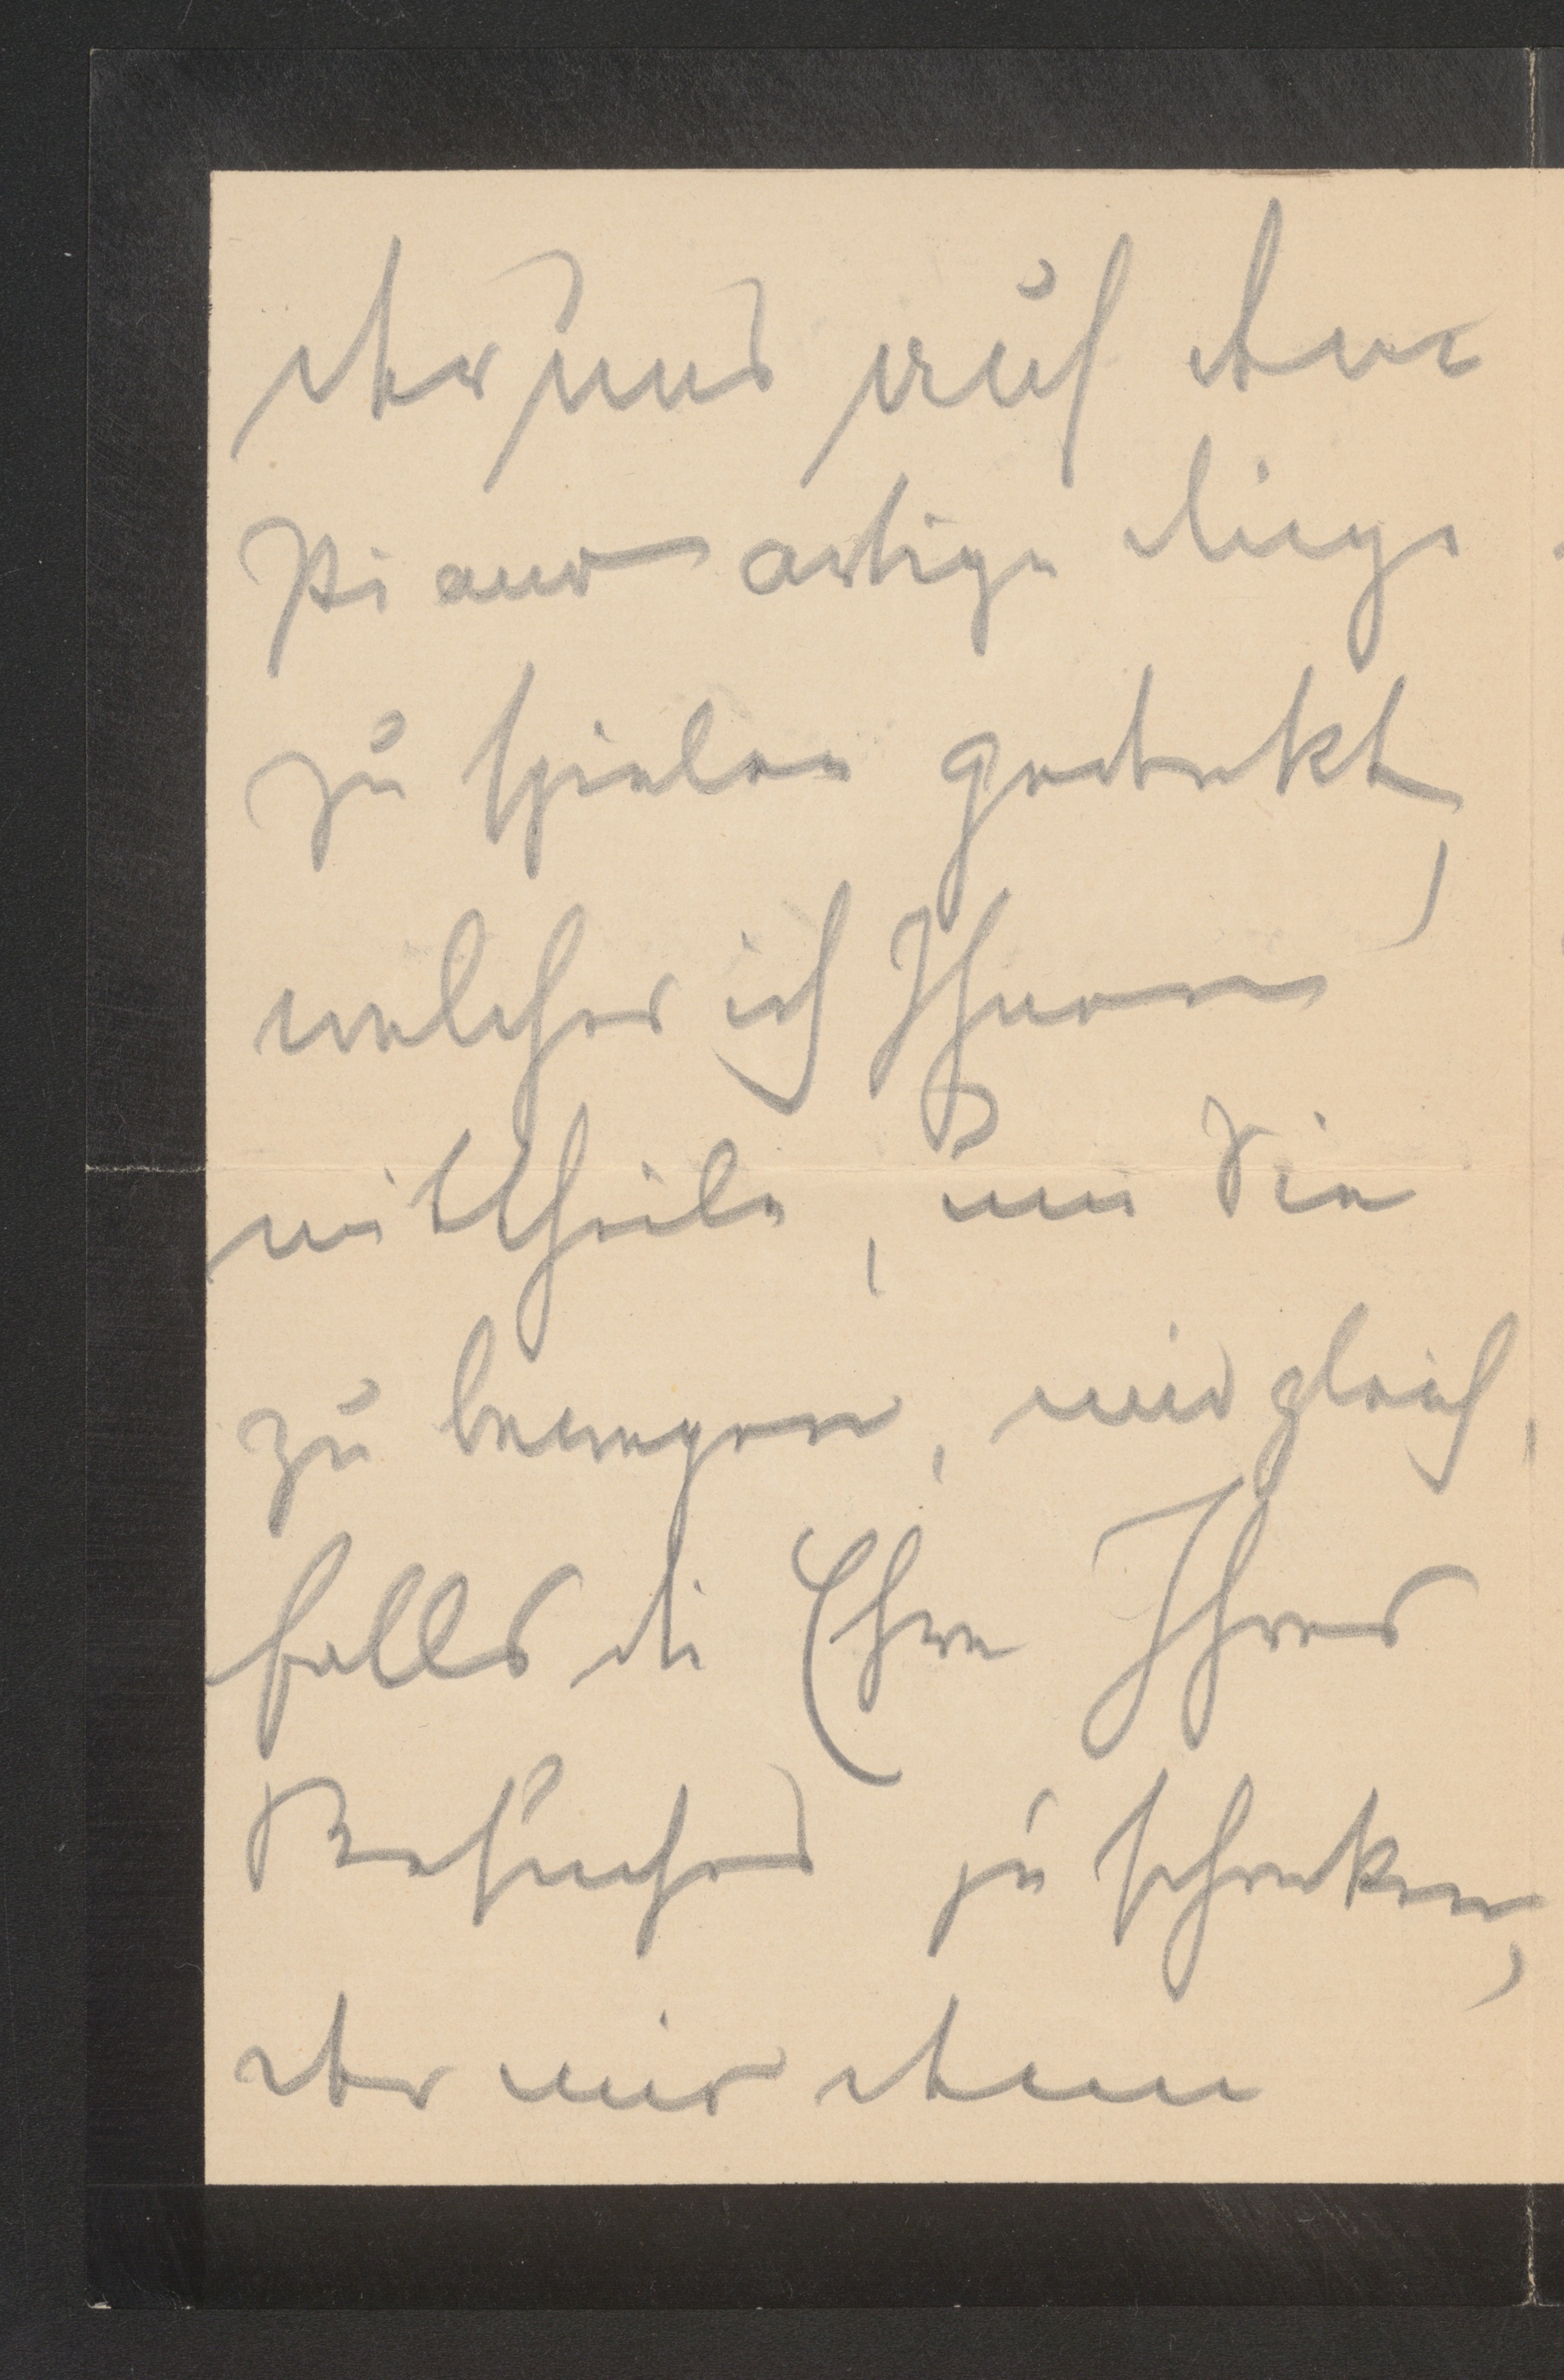 der uns auf dem
Piano artige Dinge
zu spielen gedenkt,
welches ich Ihnen
mittheile, um Sie
zu bewegen, mir gleich,
falls die Ehre Ihres
Besuches zu schenken,
der mir denn